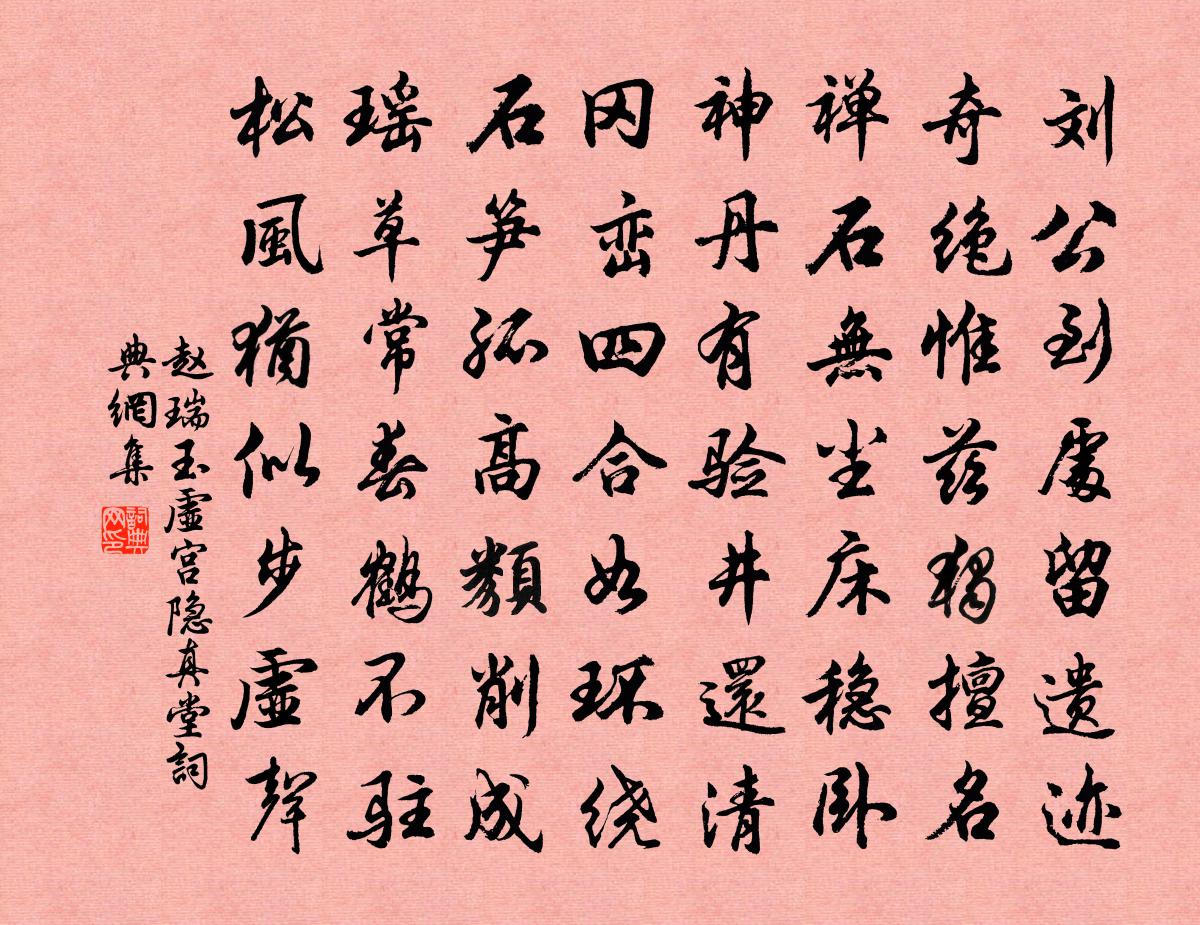 刘公到處留遗迹
奇绝惟兹獨擅名
禅石無尘床稳卧
神丹有验井還清
冈峦四合如环绕
石笋孤高類削成
瑶草常春鹤不驻
松風猶似步虚聲
赵瑞玉虚宫隐真堂詞
典網集
詞典网印